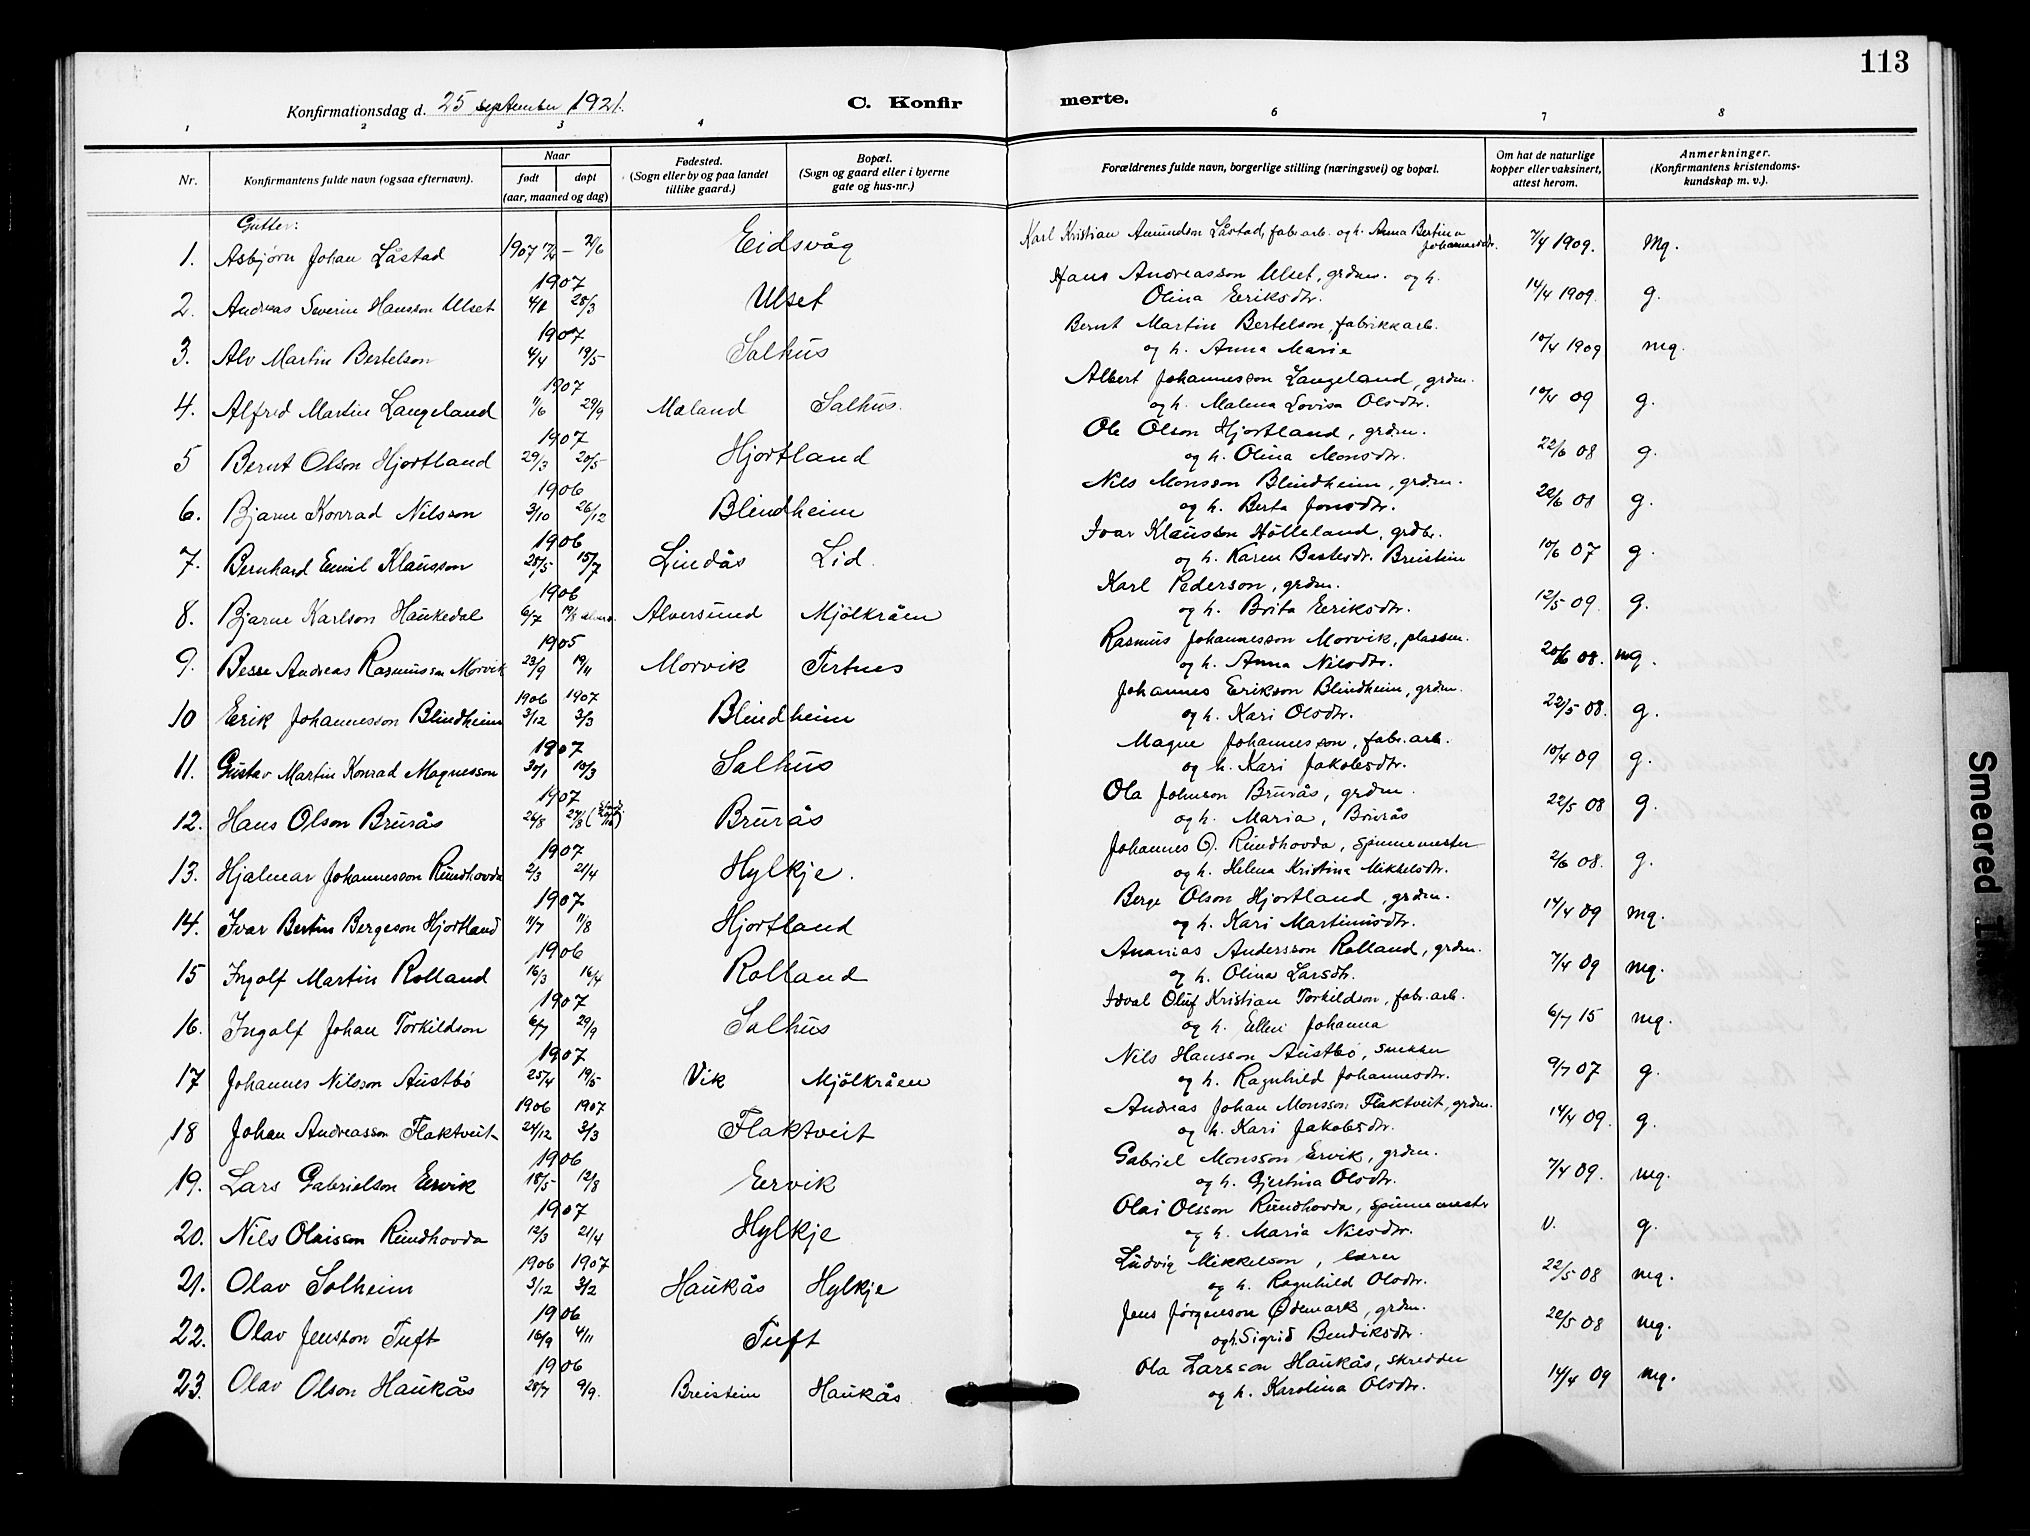 113
Konfirmationsdag d. 25 september 1921.
C. Konfirmerte.
1 2 3 4 6 7 8
Nr. Konfirmantens fulde navn (ogsaa efternavn). Naar født døpt (aar, maaned og dag) Fødested. (Sogn eller by og paa landet tillike gaard.) Bopæl. (Sogn og gaard eller i byerne gate og hus-nr.) Forældrenes fulde navn, borgerlige stilling (næringsvei) og bopæl. Om hat de naturlige kopper eller vaksinert, attest herom. Anmerkninger. (Konfirmantens kristendomskundskap m. v.).
Gutter:
1. Asbjørn Johan Låstad 1907 – 2/6 Eidsvåg Karl Kristian Amundson Låstad, fabr.arb. og h. Anna Bertina Johannesdtr. 7/4 1909. mg.
2. Andreas Severin Hansson Ulset 1907 28/3 Ulset Hans Andreasson Ulset, grdm. og h.
Olina Eeriksdtr. 14/4 1909. g.
3. Alv Martin Bertelson 1907 4/4 19/5 Salhus Bernt Martin Bertelson, fabrikkarb.
og h. Anna Marie 10/4 1909 mg.
4. Alfred Martin Langeland 1907 11/6 29/9 Maland Salhus. Albert Johannesson Langeland, grdm.
og h. Malena Lovisa Olsdtr. 10/4 09 g.
5 Bernt Olson Hjortland 1907 29/3 20/5 Hjortland Ole Olson Hjortland, grdm.
og h. Olina Monsdtr. 22/6 08 g.
6. Bjarne Konrad Nilsson 1906 3/10 26/12 Blindheim Nils Monsson Blindheim, grdm.
og h. Berta Jonsdtr. 22/6 08 g.
7. Bernhard Emil Klausson 1906 25/5 15/7 Lindås Lid. Ivar Klausson Hølleland, grdbr.
og h. Karen Bastesdr. Breistein 10/6 07 g.
8. Bjarne Karlson Haukedal 1906 6/7 19/8 Alversund Mjølkråen Karl Pederson, grdm.
og h. Brita Eeriksdtr. 12/5 09. g.
9. Besse Andreas Rasmusson Morvik 1905 23/9 19/11 Morvik Tertnes Rasmus Johannesson Morvik, plassm.
og h. Anna Nilsdtr. 20/6 08. mg.
10 Eerik Johannesson Blindheim 1906 3/12 1907 3/3 Blindheim Johannes Erikson Blindheim, grdm.
og h. Kari Olsdtr. 22/5 08. g.
11. Gustav Martin Konrad Magnesson 1907 30/1 10/3 Salhus Magne Johannesson, fabr.arb.
og h. Kari Jakobsdtr. 10/4 09 g.
12. Hans Olson Brurås 1907 26/8 27/8 Brurås Ola Johnson Brurås, grdm.
og h. Maria, Brurås 22/5 08 g.
13. Hjalmar Johannesson Rundhovda 1907 2/3 21/4 Hylkje. Johannes O. Rundhovda, spinnemester
og h. Helena Kristina Mikkelsdtr. 2/6 08. g.
14. Ivar Bertin Bergeson Hjortland 1907 11/7 11/8 Hjortland Berge Olson Hjortland, grdm.
og h. Kari Martinusdtr. 14/4 09 mg.
15 Ingolf Martin Rolland 1906 16/3 16/4 Rolland Ananias Andersson Rolland, grdm.
og h. Olina Larsdtr. 7/4 09 mg.
16. Ingolf Johan Torkildson 1907 6/7 29/9 Salhus Idval Oluf Kristian Torkildson, fabr.arb.
og h. Ellen Johanna 6/7 15 mg.
17 Johannes Nilsson Austbø 1907 25/4 19/5 Vik Mjölkråen Nils Hansson Austbø, snekker
og h. Ragnhild Johannesdtr. 9/7 07 g.
18 Johan Andreasson Flaktveit 1906 24/12 1907 3/3 Flaktveit Andreas Johan Monsson Flaktveit, grdm.
og h. Kari Jakobsdtr. 14/4 09. g.
19. Lars Gabrielson Eervik 1906 18/5 12/8 Eervik Gabriel Monsson Ervik, grdm.
og h. Gjertina Olsdtr. 7/4 09. mg.
20. Nils Olaisson Rundhovda 1907 12/3 21/4 Hylkje Olai Olsson Rundhovda, spinnemester
og h. Maria Nilsdtr. v. g.
21. Olav Solheim 1906 3/12 1907 3/2 Haukås Hylkje Ludvig Mikkelson, lærer
og h. Ragnhild Olsdtr. 22/5 08 mg.
22. Olav Jensson Tuft 1906 16/9 4/11 Tuft Jens Jørgenson Ødemark, grdm.
og h. Sigrid Bendiksdtr. 22/5 08 mg.
23. Olav Olson Haukås 1906 28/7 9/9. Breistein Haukås. Ola Larsson Haukås, skredder
og h. Karolina Olsdtr. 14/4 09 mg.
Smeared